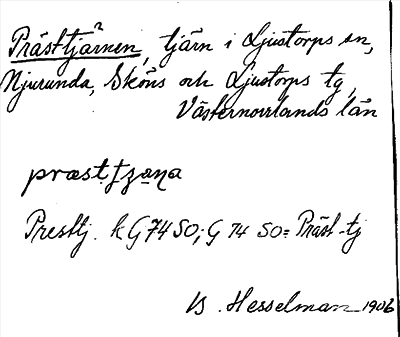 Prästtjärnen, tjärn i Ljustorps sn,
Njurunda, Sköns och Ljustorps tg,
Västernorrlands län
præstʃæṇa
Presttj. k G 74 SO; G 74 SO = Präst-tj
B. Hesselman 1906